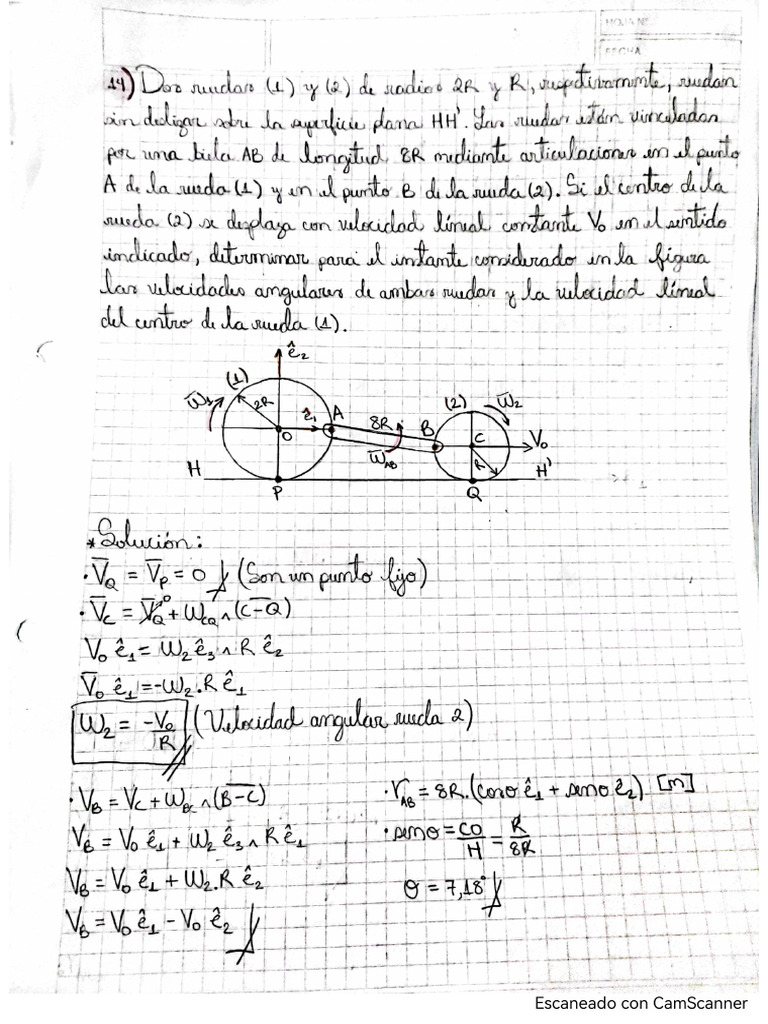 HOJA Nº
FECHA
14) Dos ruedas (1) y (2) de radios 2R y R, respectivamente, ruedan
sin deslizar sobre la superficie plana HH'. Las ruedas están vinculadas
por una biela AB de longitud 8R mediante articulaciones en el punto
A de la rueda (1) y en el punto B de la rueda (2). Si el centro de la
rueda (2) se desplaza con velocidad líneal constante V₀ en el sentido
indicado, determinar para el instante considerado en la figura
las velocidades angulares de ambas ruedas y la velocidad líneal
del centro de la rueda (1).
ê₂
(1)
W̄₁
2R
ê₁
A
O
8R
W̄_AB
B
(2)
W̄₂
C
V₀
R
H
H'
P
Q
* Solución:
· V̄_Q = V̄_P = 0 (Son un punto fijo)
· V̄_C = V̄_Q⁰ + W_CQ ∧ (C-Q)
V₀ ê₁ = W₂ ê₃ ∧ R ê₂
V̄₀ ê₁ = -W₂.R ê₁
W₂ = -V₀/R (Velocidad angular rueda 2)
· V_B = V_C + W_BC ∧ (B-C)
V_B = V₀ ê₁ + W₂ ê₃ ∧ R ê₁
V_B = V₀ ê₁ + W₂.R ê₂
V_B = V₀ ê₁ - V₀ ê₂
· r_AB = 8R.(cosθ ê₁ + senθ ê₂) [m]
· senθ = CO/H = R/8R
θ = 7,18°
Escaneado con CamScanner